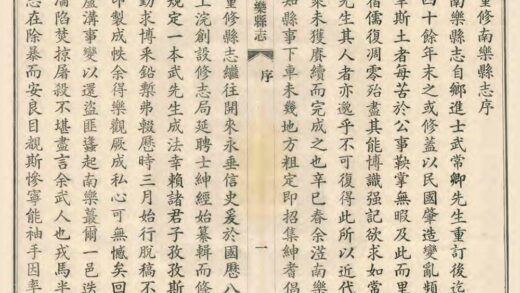 重修南樂縣志序
南樂縣志自鄉進士武常卿先生重訂後迄
四十餘年未之或修蓋以民國肇造變亂頻
宰斯土者每苦於公事鞅掌無暇及此而里
宿儒復凋零殆盡其能博識强記欲求如常
先生其人者亦邈乎不可復得此所以近代
來未獲賡續而完成之也辛巳春余涖南樂
知縣事下車未幾地方粗定即招集紳耆倡
樂縣志
序
一
重修縣志繼往開來永垂信史爰於國曆八
上浣創設修志局延聘士紳經始纂輯而條
規定一本武先生成法幸賴諸君子孜孜斯
勤求博采鉛槧弗輟歷時三月始行脫稿不
印製成帙余得樂觀厥成私心可無憾矣回
蘆溝事變以還盜匪蠭起南樂蕞爾一邑迭
淪陷焚掠屠殺不堪盡言余武人也戎馬半
志在除暴而安良目覩斯慘寧能袖手因率